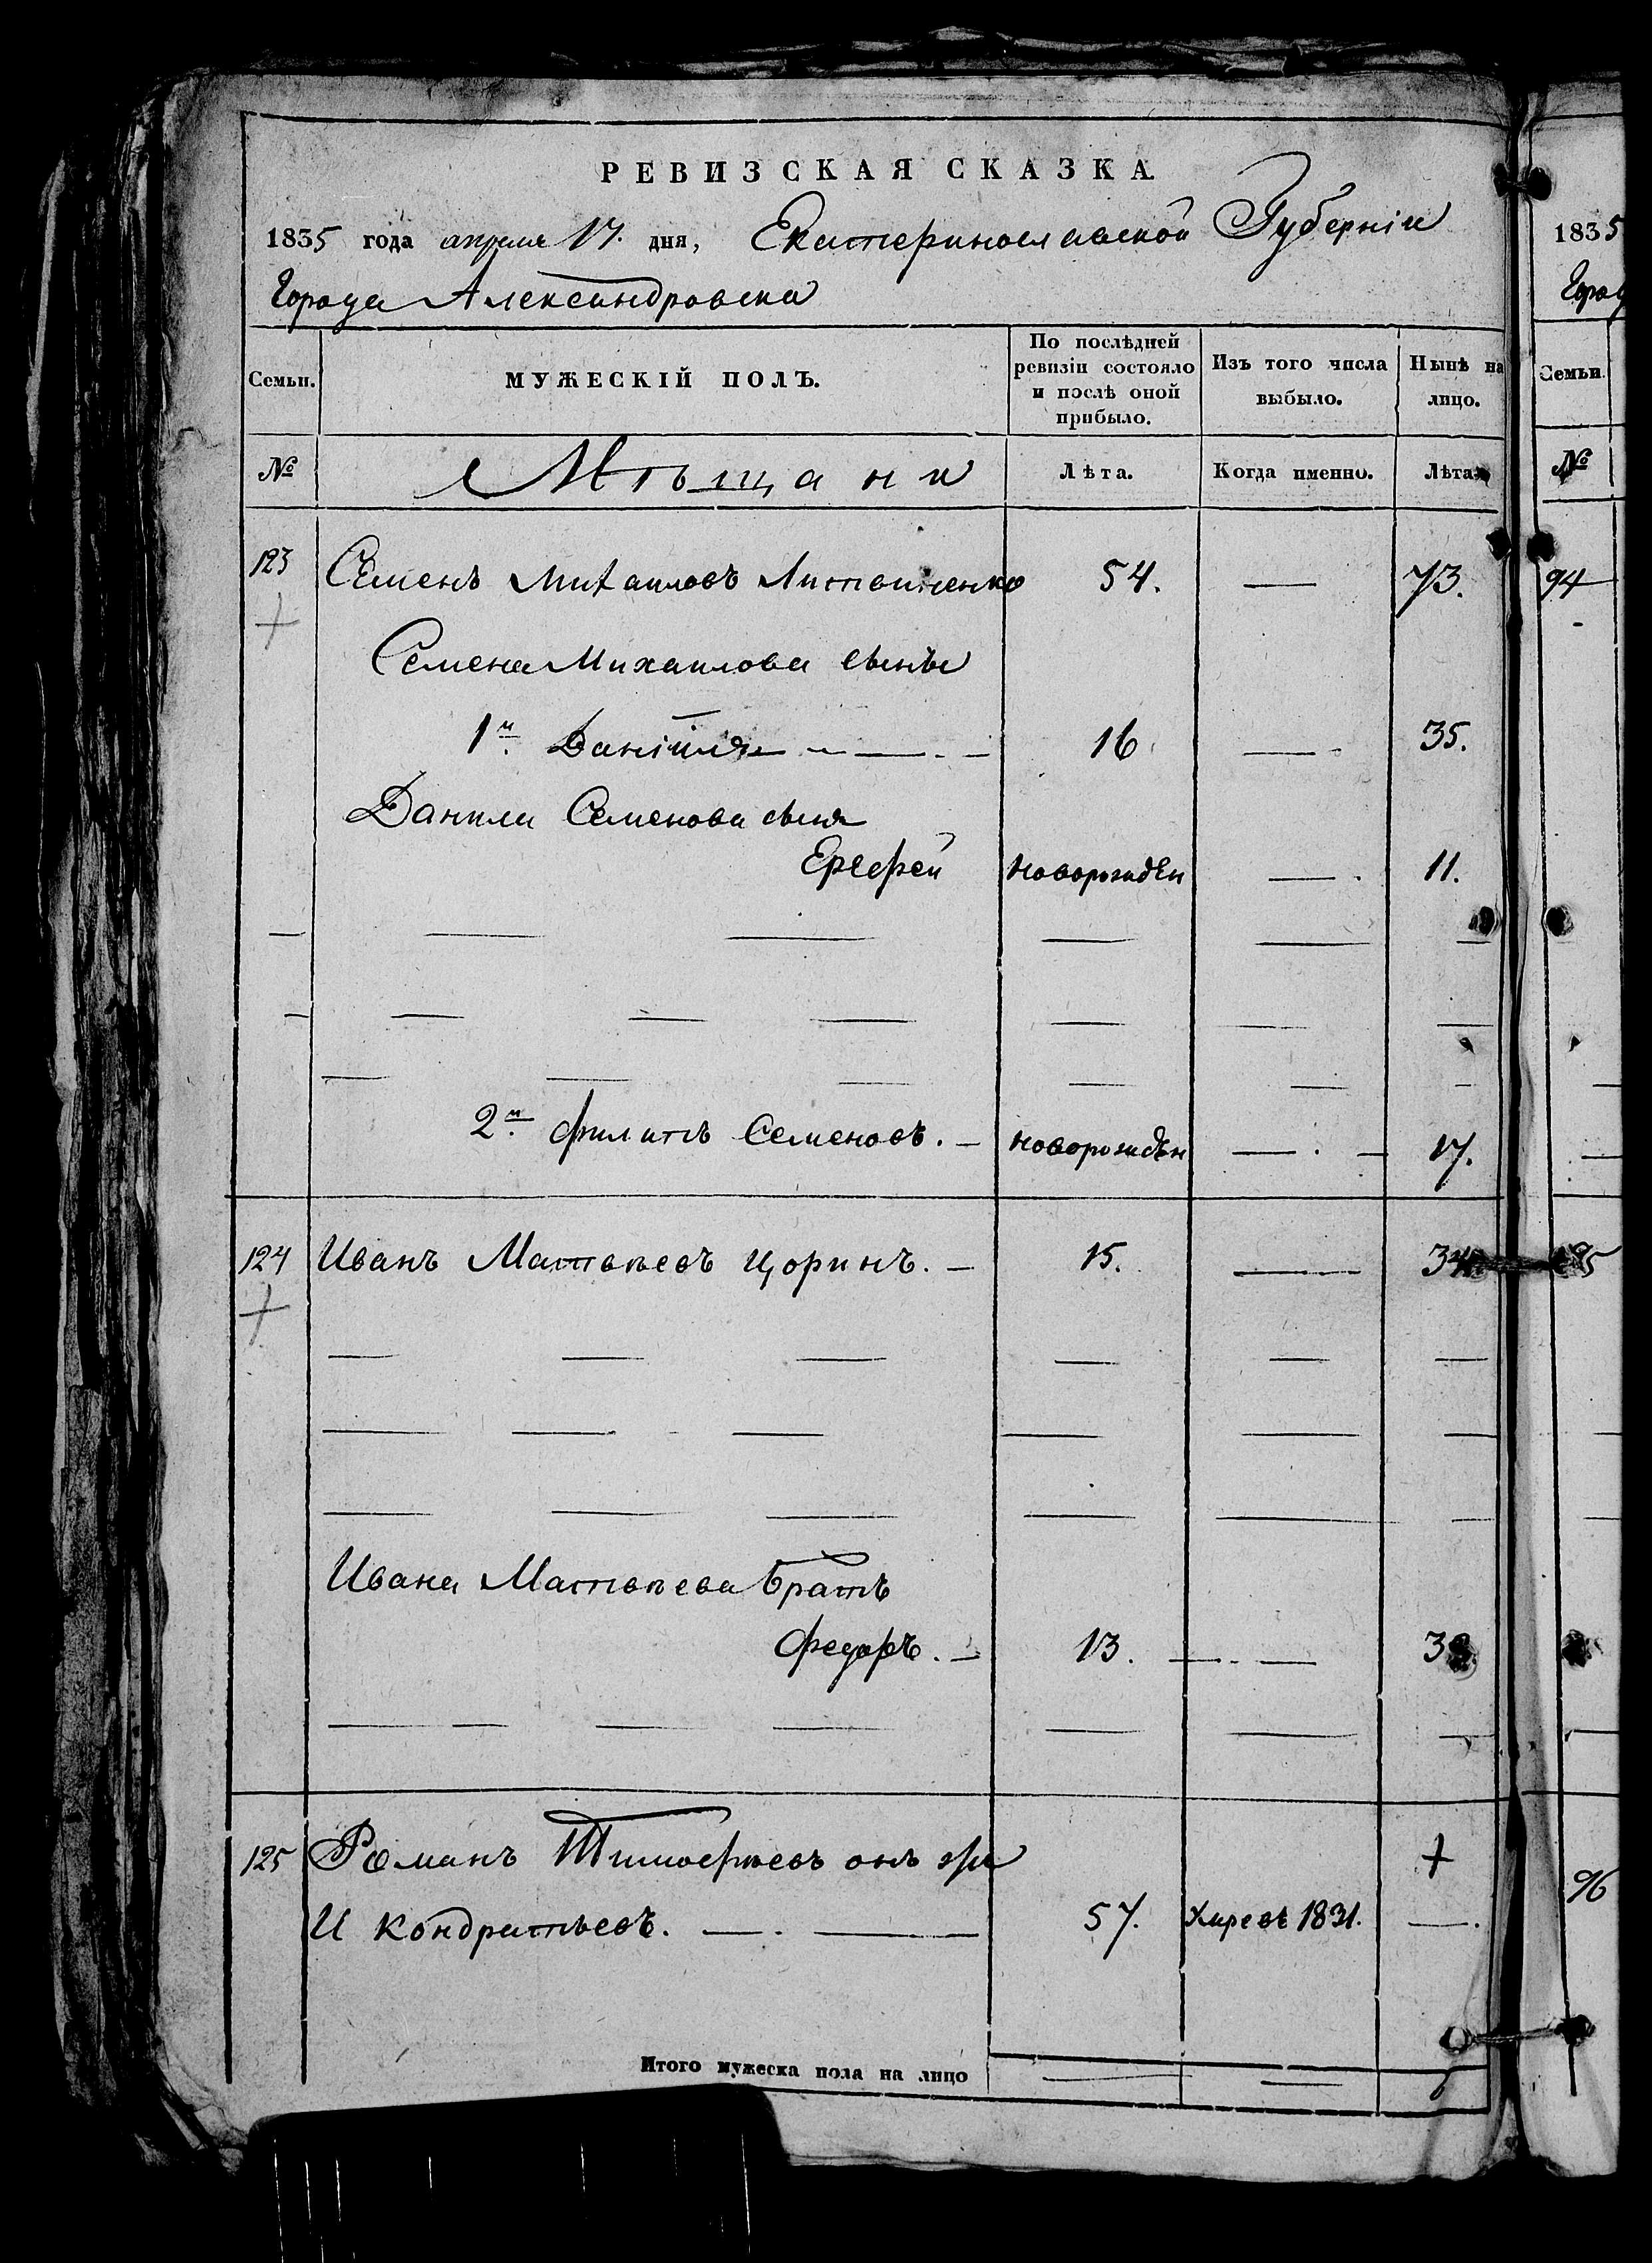 РЕВИЗСКАЯ СКАЗКА
1835 года апреля 17. дня, Екатеринославской Губерніи
Города Александровска
Семьи. МУЖЕСКІЙ ПОЛЪ. По послѣдней ревизіи состояло и послѣ оной прибыло. Изъ того числа выбыло. Нынѣ на лицо.
№ Мѣщани Лѣта. Когда именно. Лѣта
123 Семенъ Михаиловъ Литвиненко 54. — 73.
Семена Михаилова сынъи
1й Даніила — 16 — 35.
Данили Семенова сынъ
Ерефей новорожден — 11.
2й Филипъ Семеновъ. — новорожден — 17.
124 Иванъ Матвѣевъ Цоринъ. — 15. — 34
Ивана Матвѣева братъ
Федоръ. — 13. —
125 Романъ Тимофѣевъ онъ же
И Кондратьевъ. — 57. 1831. —
Итого мужеска пола на лицо 6
1835
Семьи.
№
94
95
96